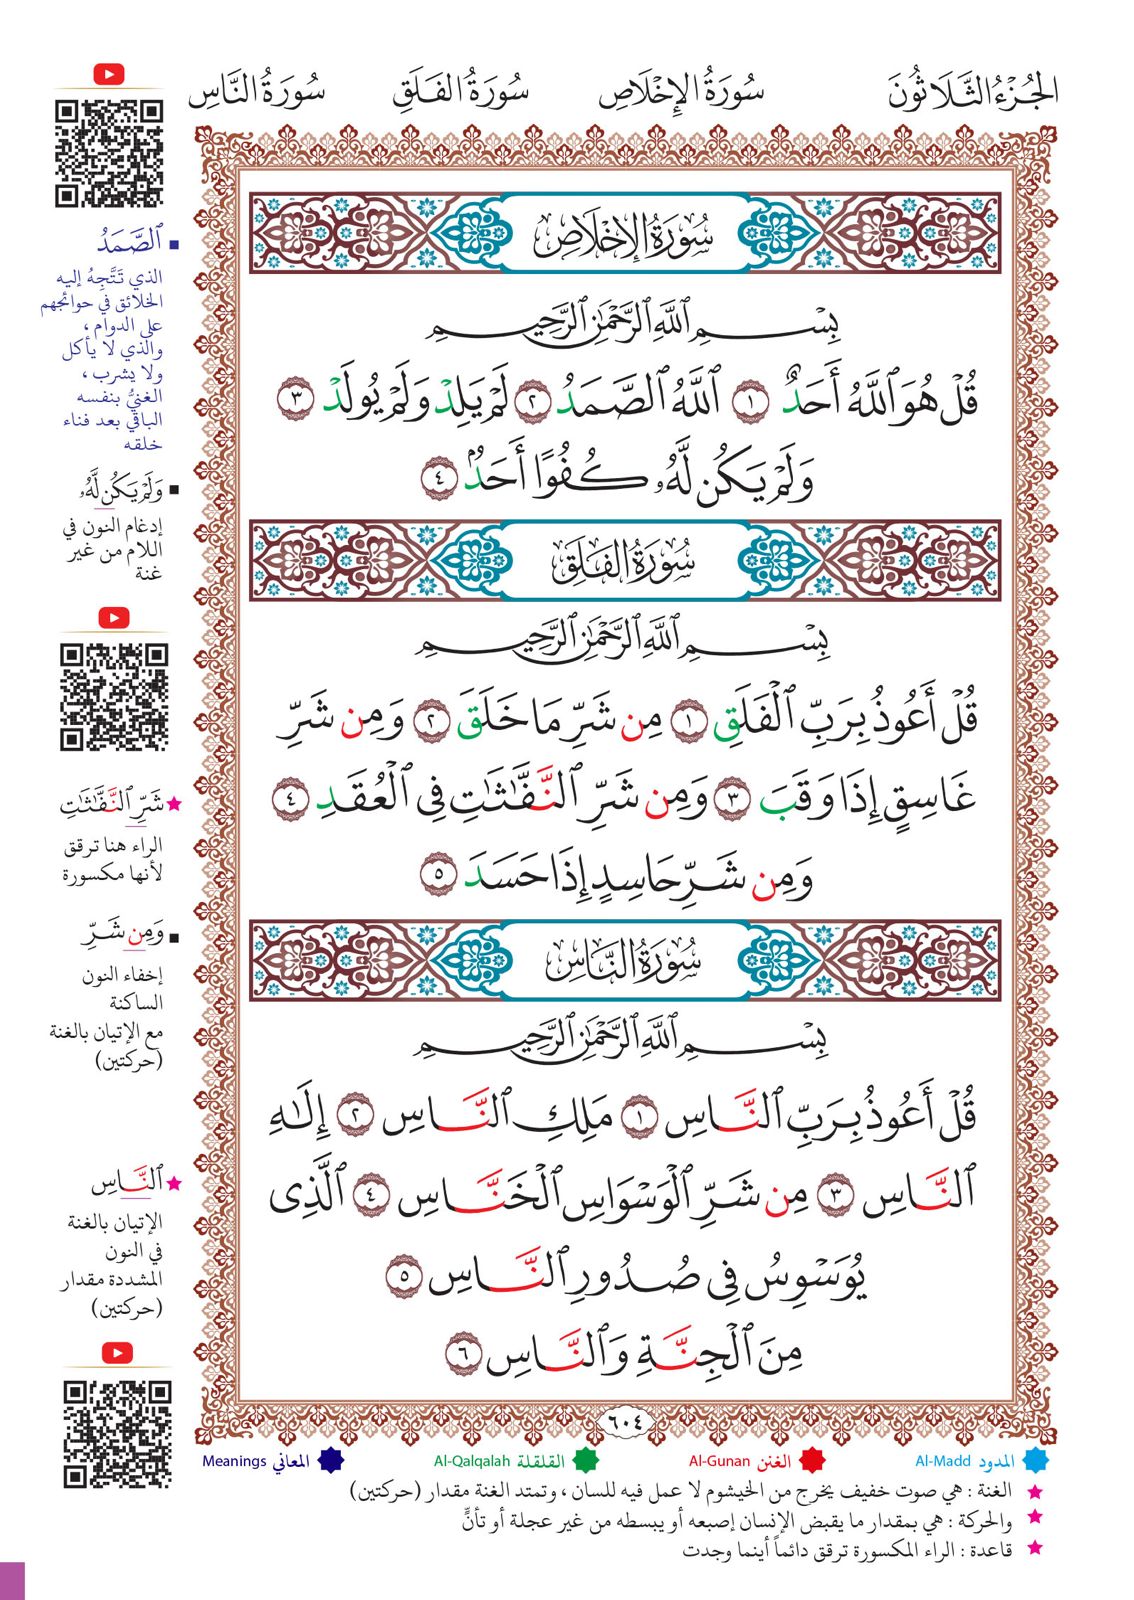 الجُزْءُ الثَّلَاثُونَ سُورَةُ الإِخْلَاصِ سُورَةُ الفَلَقِ سُورَةُ النَّاسِ
سُورَةُ الإِخْلَاصِ
بِسْمِ ٱللَّهِ ٱلرَّحْمَٰنِ ٱلرَّحِيمِ
قُلْ هُوَ ٱللَّهُ أَحَدٌ ١ ٱللَّهُ ٱلصَّمَدُ ٢ لَمْ يَلِدْ وَلَمْ يُولَدْ ٣
وَلَمْ يَكُن لَّهُۥ كُفُوًا أَحَدٌۢ ٤
سُورَةُ الفَلَقِ
بِسْمِ ٱللَّهِ ٱلرَّحْمَٰنِ ٱلرَّحِيمِ
قُلْ أَعُوذُ بِرَبِّ ٱلْفَلَقِ ١ مِن شَرِّ مَا خَلَقَ ٢ وَمِن شَرِّ
غَاسِقٍ إِذَا وَقَبَ ٣ وَمِن شَرِّ ٱلنَّفَّٰثَٰتِ فِى ٱلْعُقَدِ ٤
وَمِن شَرِّ حَاسِدٍ إِذَا حَسَدَ ٥
سُورَةُ النَّاسِ
بِسْمِ ٱللَّهِ ٱلرَّحْمَٰنِ ٱلرَّحِيمِ
قُلْ أَعُوذُ بِرَبِّ ٱلنَّاسِ ١ مَلِكِ ٱلنَّاسِ ٢ إِلَٰهِ
ٱلنَّاسِ ٣ مِن شَرِّ ٱلْوَسْوَاسِ ٱلْخَنَّاسِ ٤ ٱلَّذِى
يُوَسْوِسُ فِى صُدُورِ ٱلنَّاسِ ٥
مِنَ ٱلْجِنَّةِ وَٱلنَّاسِ ٦
٦٠٤
ٱلصَّمَدُ
الذي تَتَّجِهُ إليه
الخلائق في حوائجهم
على الدوام ،
والذي لا يأكل
ولا يشرب ،
الغنيُّ بنفسه
الباقي بعد فناء
خلقه
وَلَمْ يَكُن لَّهُۥ
إدغام النون في
اللام من غير
غنة
شَرِّ ٱلنَّفَّٰثَٰتِ
الراء هنا ترقق
لأنها مكسورة
وَمِن شَرِّ
إخفاء النون
الساكنة
مع الإتيان بالغنة
(حركتين)
ٱلنَّاسِ
الإتيان بالغنة
في النون
المشددة مقدار
(حركتين)
المدود Al-Madd الغنن Al-Gunan القلقلة Al-Qalqalah المعاني Meanings
الغنة : هي صوت خفيف يخرج من الخيشوم لا عمل فيه للسان ، وتمتد الغنة مقدار (حركتين)
والحركة : هي بمقدار ما يقبض الإنسان إصبعه أو يبسطه من غير عجلة أو تأنٍّ
قاعدة : الراء المكسورة ترقق دائماً أينما وجدت